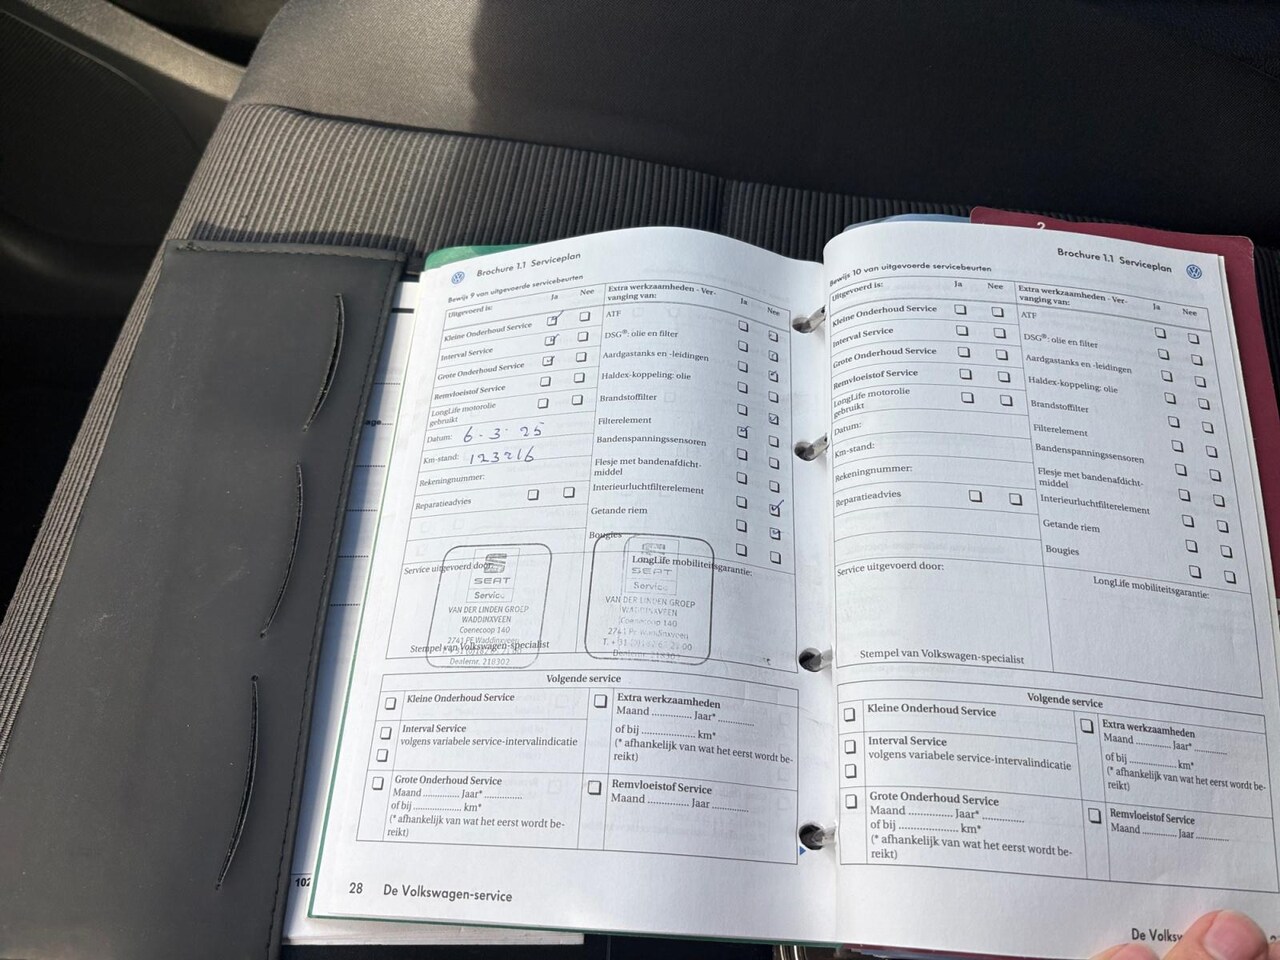 2
Brochure 1.1 Serviceplan
Bewijs 9 van uitgevoerde servicebeurten
Uitgevoerd is:
Ja
Nee
Kleine Onderhoud Service
Interval Service
Grote Onderhoud Service
Remvloeistof Service
LongLife motorolie
gebruikt
Datum: 6-3-25
Km-stand: 123216
Rekeningnummer:
Reparatieadvies
Extra werkzaamheden - Ver-
vanging van:
Ja
Nee
ATF
DSG®: olie en filter
Aardgastanks en -leidingen
Haldex-koppeling: olie
Brandstoffilter
Filterelement
Bandenspanningssensoren
Flesje met bandenafdicht-
middel
Interieurluchtfilterelement
Getande riem
Bougies
Service uitgevoerd door:
LongLife mobiliteitsgarantie:
SEAT
Service
VAN DER LINDEN GROEP
WADDINXVEEN
Coenecoop 140
2741 PE Waddinxveen
Dealernr. 218302
SEAT
Service
VAN DER LINDEN GROEP
WADDINXVEEN
Coenecoop 140
2741 PE Waddinxveen
Dealernr. 218302
Stempel van Volkswagen-specialist
Volgende service
Kleine Onderhoud Service
Interval Service
volgens variabele service-intervalindicatie
Grote Onderhoud Service
Maand .............. Jaar* ..............
of bij .................. km*
(* afhankelijk van wat het eerst wordt be-
reikt)
Extra werkzaamheden
Maand .............. Jaar* ..............
of bij .................. km*
(* afhankelijk van wat het eerst wordt be-
reikt)
Remvloeistof Service
Maand .............. Jaar ..............
28 De Volkswagen-service
102
Brochure 1.1 Serviceplan
Bewijs 10 van uitgevoerde servicebeurten
Uitgevoerd is:
Ja
Nee
Kleine Onderhoud Service
Interval Service
Grote Onderhoud Service
Remvloeistof Service
LongLife motorolie
gebruikt
Datum:
Km-stand:
Rekeningnummer:
Reparatieadvies
Extra werkzaamheden - Ver-
vanging van:
Ja
Nee
ATF
DSG®: olie en filter
Aardgastanks en -leidingen
Haldex-koppeling: olie
Brandstoffilter
Filterelement
Bandenspanningssensoren
Flesje met bandenafdicht-
middel
Interieurluchtfilterelement
Getande riem
Bougies
Service uitgevoerd door:
LongLife mobiliteitsgarantie:
Stempel van Volkswagen-specialist
Volgende service
Kleine Onderhoud Service
Interval Service
volgens variabele service-intervalindicatie
Grote Onderhoud Service
Maand .............. Jaar* ..............
of bij .................. km*
(* afhankelijk van wat het eerst wordt be-
reikt)
Extra werkzaamheden
Maand .............. Jaar* ..............
of bij .................. km*
(* afhankelijk van wat het eerst wordt be-
reikt)
Remvloeistof Service
Maand .............. Jaar ..............
De Volksw